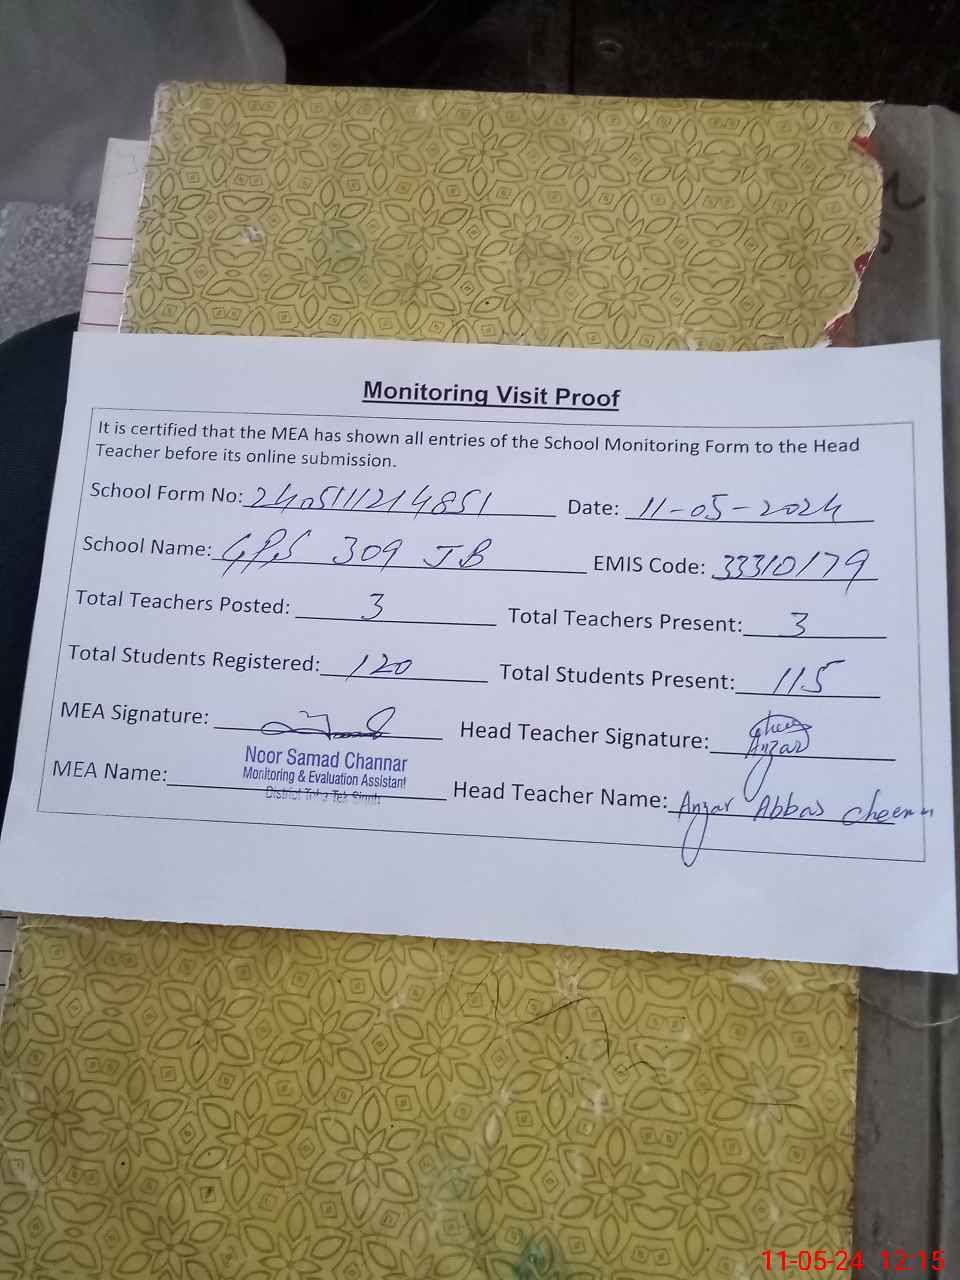 Monitoring Visit Proof
It is certified that the MEA has shown all entries of the School Monitoring Form to the Head
Teacher before its online submission.
School Form No: 2405111214851 Date: 11-05-2024
School Name: GPS 309 JB EMIS Code: 33310179
Total Teachers Posted: 3 Total Teachers Present: 3
Total Students Registered: 120 Total Students Present: 115
MEA Signature: Head Teacher Signature: Anzar
Noor Samad Channar
Monitoring & Evaluation Assistant
District Toba Tek Singh
MEA Name: Head Teacher Name: Anzar Abbas Cheema
11-05-24 12:15